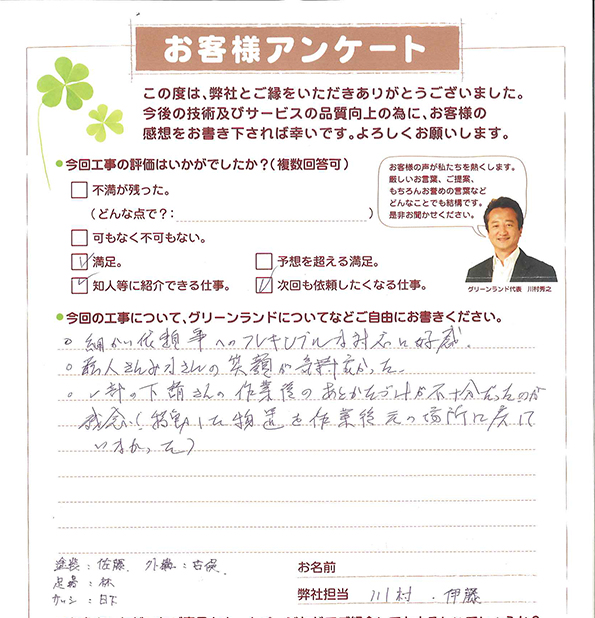 お客様アンケート
この度は、弊社とご縁をいただきありがとうございました。
今後の技術及びサービスの品質向上の為に、お客様の
感想をお書き下されば幸いです。よろしくお願いします。
今回工事の評価はいかがでしたか?(複数回答可)
不満が残った。
(どんな点で?: )
可もなく不可もない。
満足。
予想を超える満足。
知人等に紹介できる仕事。
次回も依頼したくなる仕事。
お客様の声が私たちを熱くします。
厳しいお言葉、ご提案、
もちろんお誉めの言葉など
どんなことでも結構です。
是非お聞かせください。
グリーンランド代表 川村秀之
今回の工事について、グリーンランドについてなどご自由にお書きください。
○ 細かい依頼事へのフレキシブルな対応に好感。
○ 職人さんみなさんの笑顔が良かった。
○ 一部の下請さんの作業後のあとかたづけが不十分だったのが
残念(移動した物置を作業後元の場所に戻して
いなかった)
塗装:佐藤、外構:古俣、
足場:林
サッシ:日下
お名前
弊社担当 川村 . 伊藤